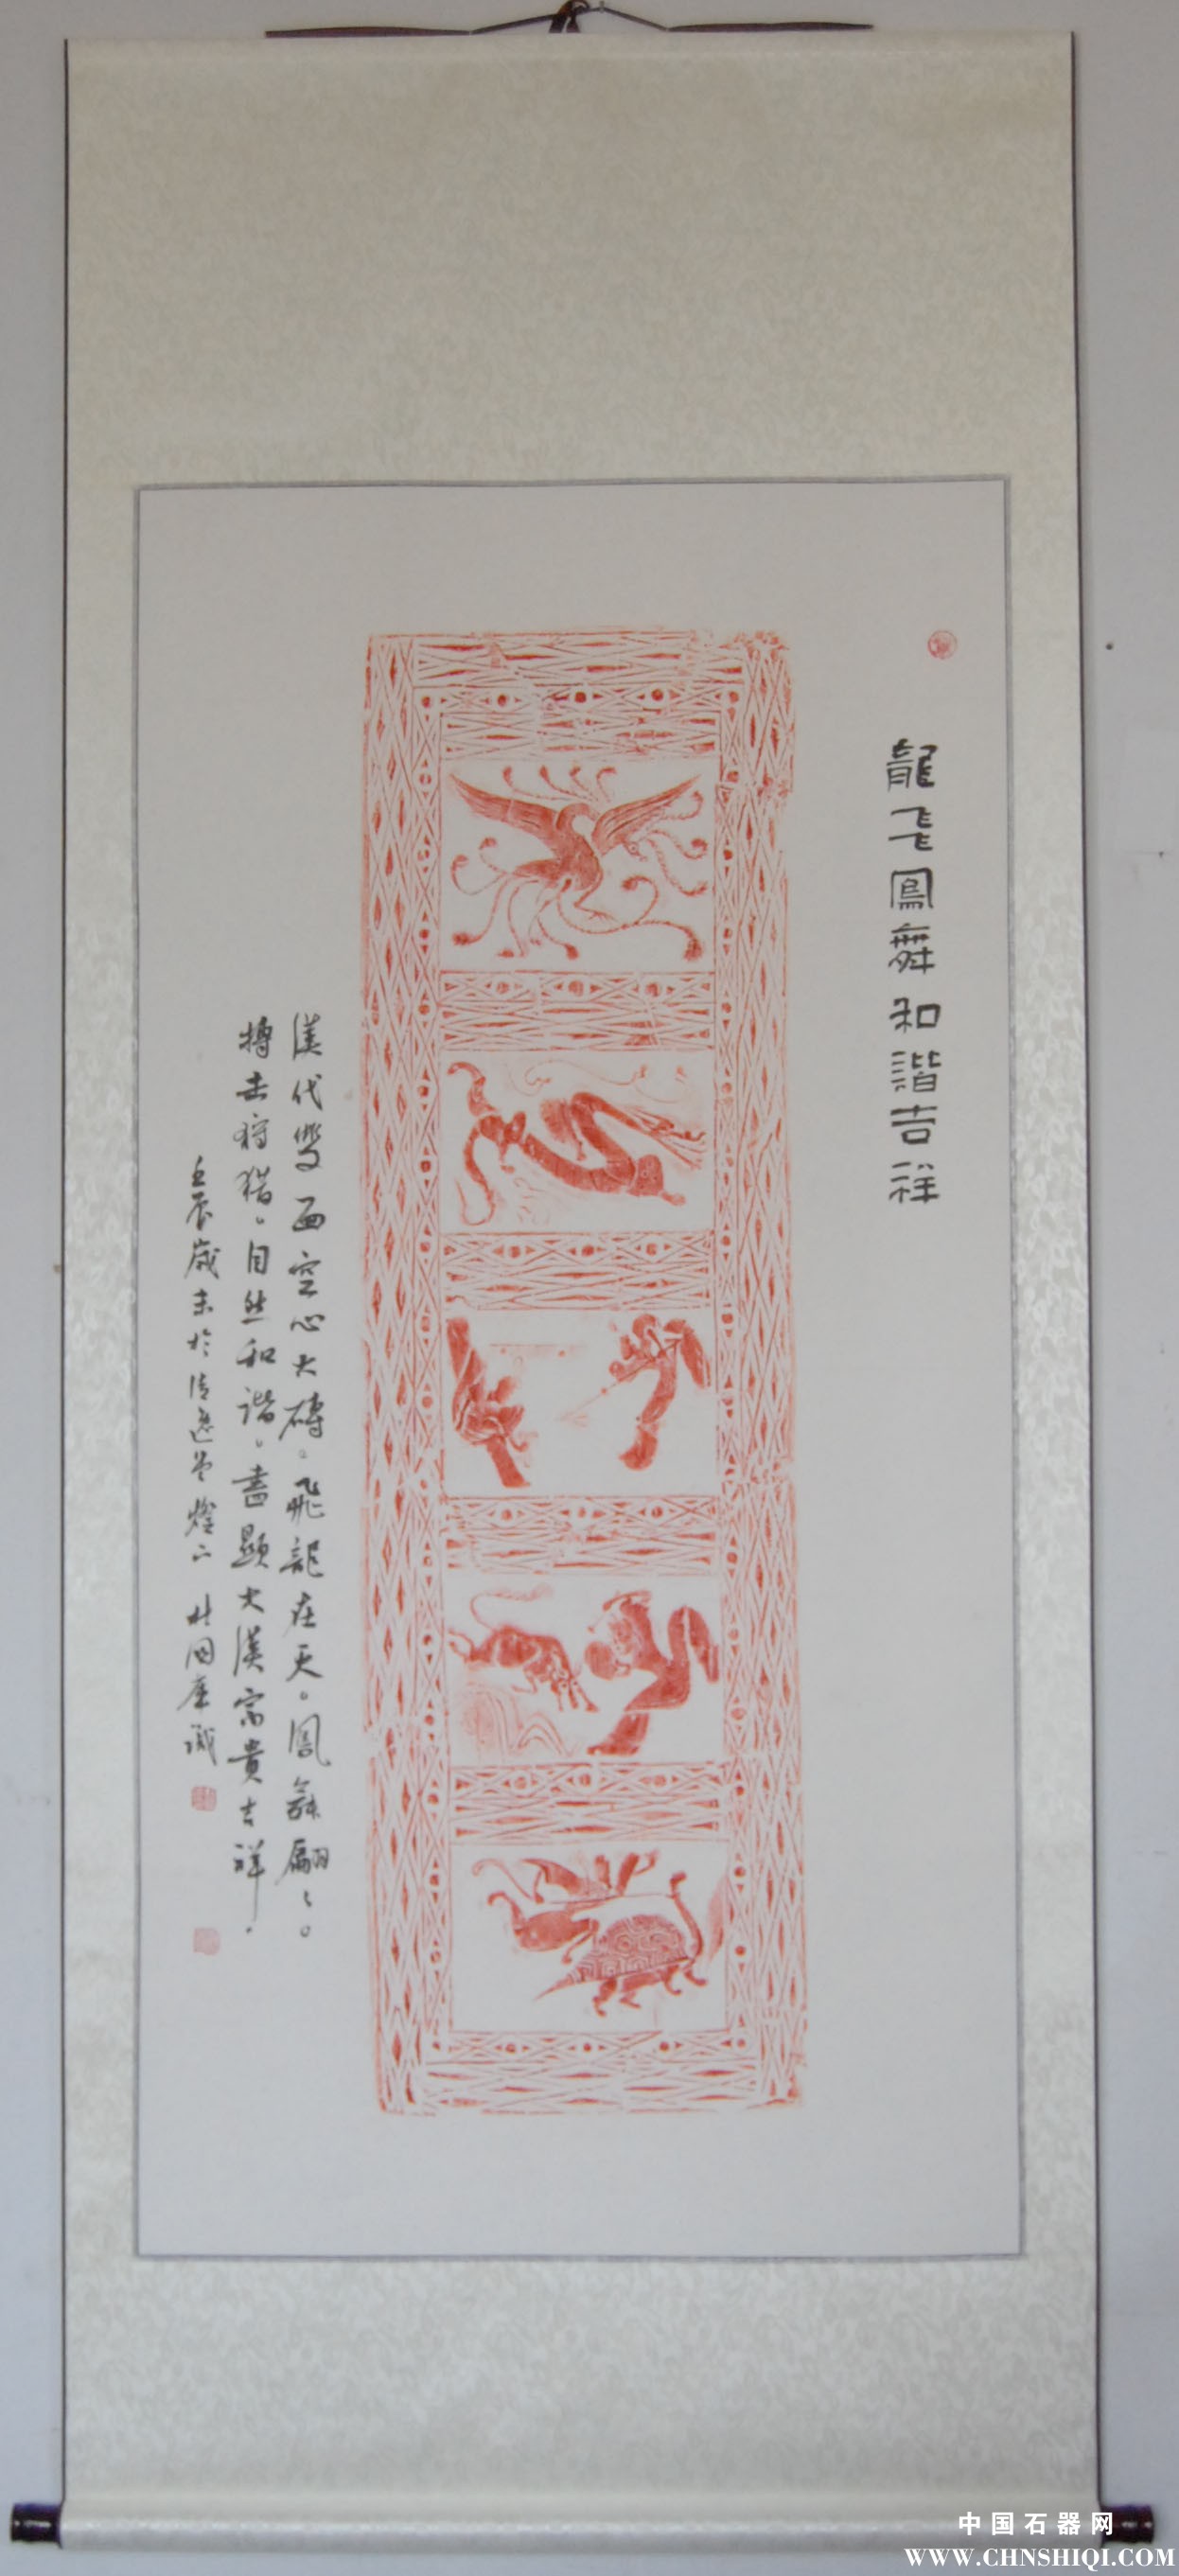 龍飛鳳舞和諧吉祥
漢代雙面空心大磚。飛龍在天。鳳舞翩〻。
搏击狩猎。自然和谐。盡顯大漢富貴吉祥.
壬辰歲末於清逸堂燈下 杜國産識
中国石器网
WWW.CHNSHIQI.COM